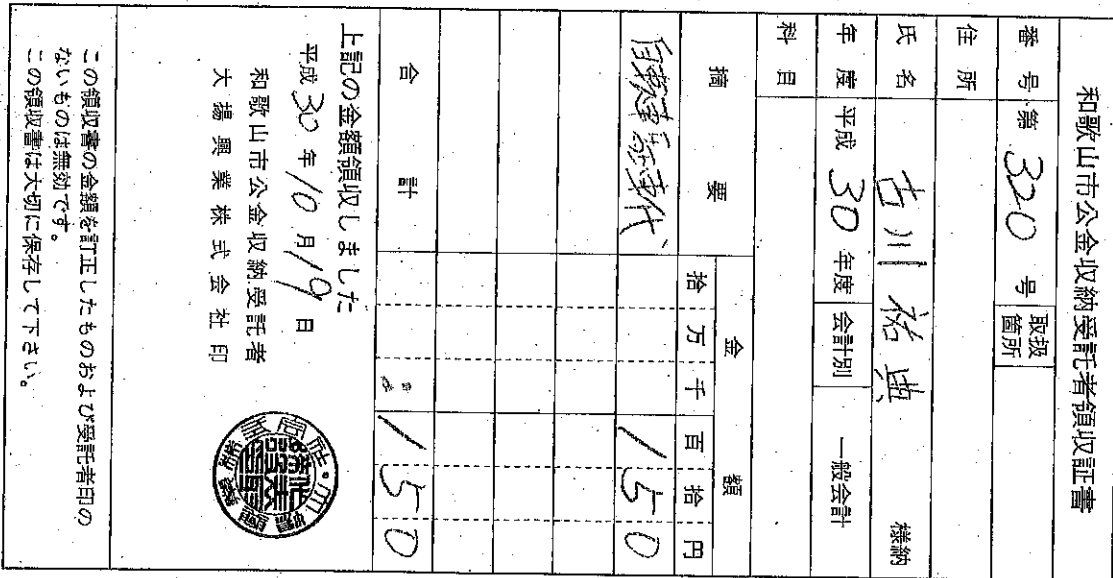 和歌山市公金収納受託者領収証書
番号 第 320 号 取扱箇所
住所
氏名 古川 祐典 様納
年度 平成 30 年度 会計別 一般会計
科目
摘要 金額
拾 万 千 百 拾 円
自転車駐車代 150
合計 150
上記の金額領収しました
平成 30 年 10 月 19 日
和歌山市公金収納受託者
大揚興業株式会社 印
この領収書の金額を訂正したものおよび受託者印の
ないものは無効です。
この領収書は大切に保存して下さい。